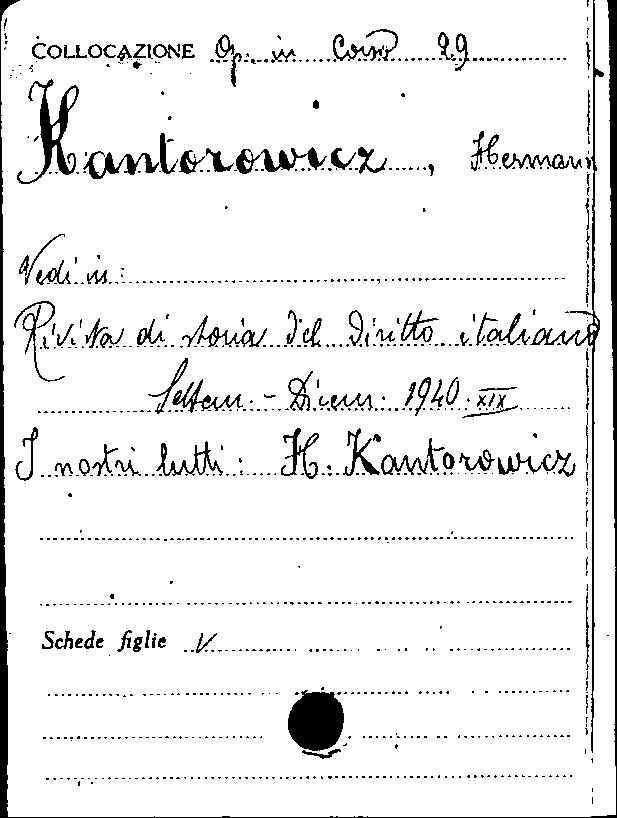 COLLOCAZIONE Op. in Corso 29
Kantorowicz, Hermann
Vedi in:
Rivista di storia del diritto italiano
Settem. - Dicem. 1940. XIX
I nostri lutti: H. Kantorowicz
Schede figlie V